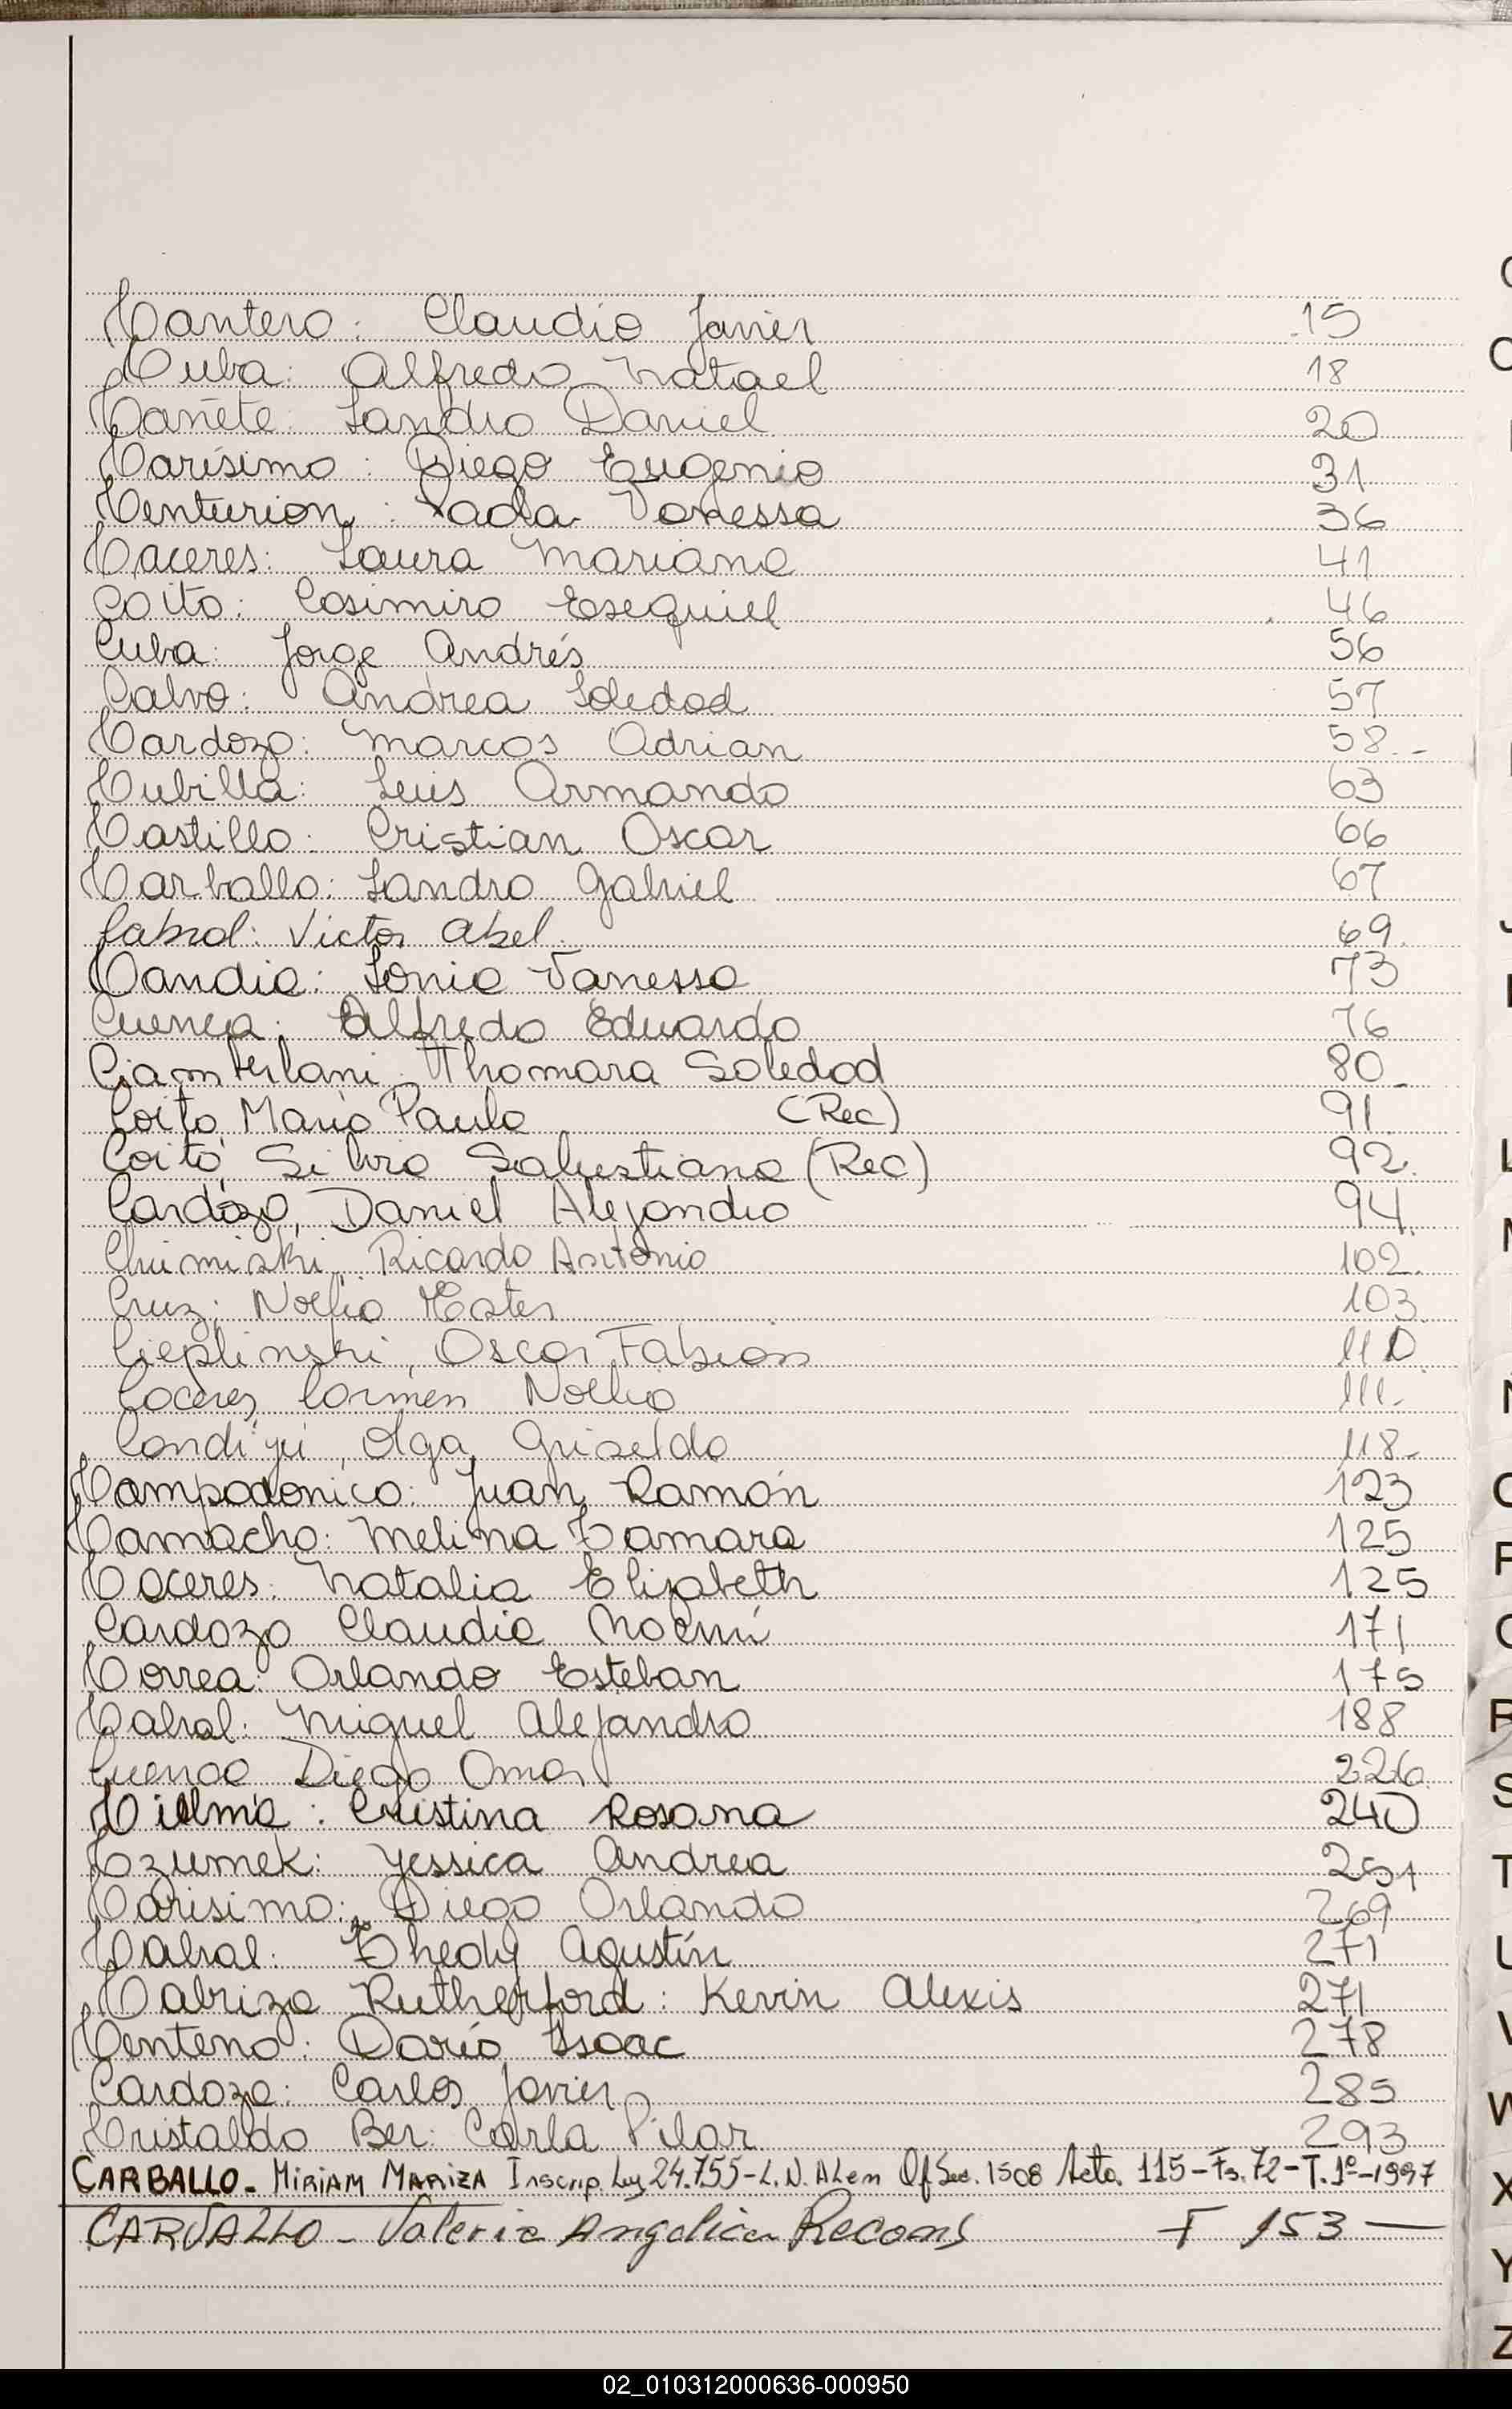 Cantero: Claudio Javier 15
Cuba: Alfredo Natael 18
Cañete: Sandro Daniel 20
Carísimo: Diego Eugenio 31
Centurion: Paola Vanessa 36
Caceres: Laura Mariana 41
Coito: Casimiro Esequiel 46
Cuba: Jorge Andrés 56
Calvo: Andrea Soledad 57
Cardozo: Marcos Adrian 58.-
Cubilla: Luis Armando 63
Castillo: Cristian Oscar 66
Carballo: Sandro Gabriel 67
Cabral: Victor Abel. 69.
Candia: Sonia Vanessa 73
Cuenca: Alfredo Eduardo 76
Thamara Soledad 80_
Coito, Mario Paulo (Rec) 91
Coito, Silvia Salustiana (Rec) 92.
Cardozo, Daniel Alejandro 94.
Chimiski, Ricardo Antonio 102.
Cruz; Noelia Ester 103.
Cieplinski, Oscar Fabian 110
Caceres, Carmen Noelia 111.
Candiyú, Olga Griselda 118-
Campodonico: Juan Ramón 123
Camacho: Melina Tamara 125
Caceres: Natalia Elizabeth 125
Cardozo Claudia Noemí 171
Correa: Orlando Esteban 175
Cabral: Miguel Alejandro 188
Cuenca Diego Omar 226.
Cristina Rosana 240
Czumek: Yessica Andrea 251
Carisimo: Diego Orlando 269
Cabral: Agustín 271
Cabriza Rutherford: Kevin Alexis 271
Centeno: Darío Isaac 278
Cardozo: Carlos Javier 285
Cristaldo Ber: Carla Pilar 293
CARBALLO- MIRIAM MARIZA Inscrip. Ley 24.755-L.N.Alem Of Sec. 1508 Acta 115-Fs.72-T.1º-1997
CARVALLO - Valeria Angelica F 153 —
C
O
J
L
M
N
R
S
T
U
V
W
X
Y
Z
02_010312000636-000950